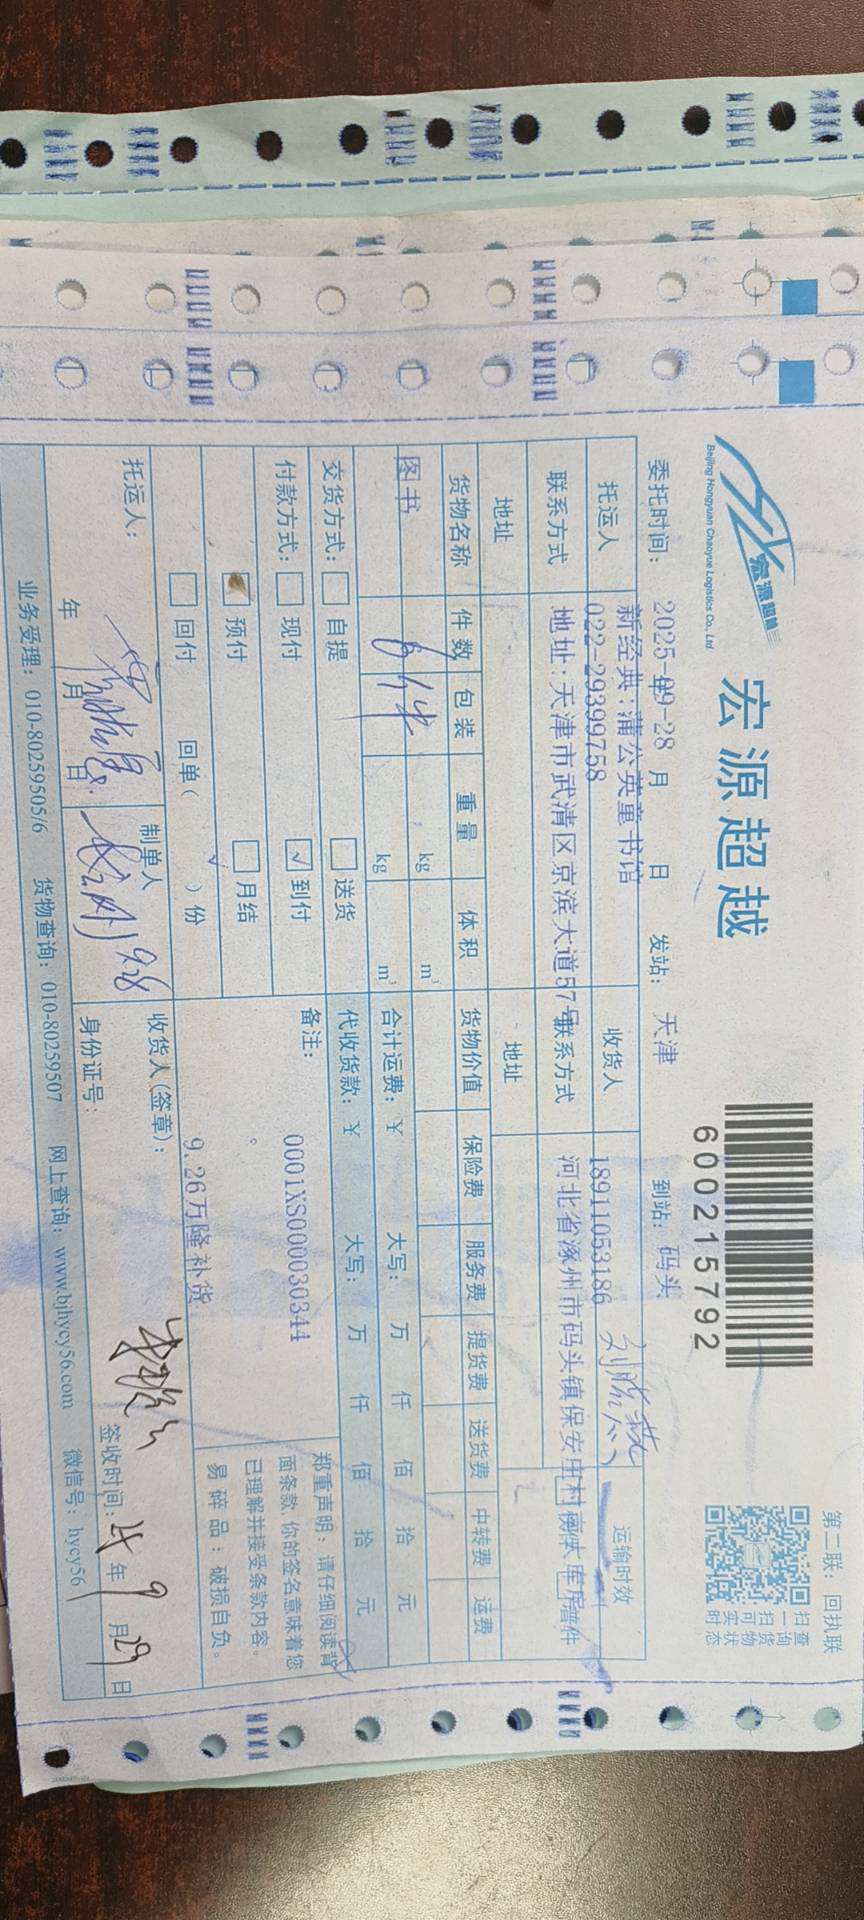 宏源超越
Beijing Hongyuan Chaoyue Logistics Co., Ltd
宏源超越
600215792
第二联：回执联
扫一扫可实时
查询货物状态
委托时间：2025-09-28 年 月 日 发站：天津 到站：码头
托运人 新经典:蒲公英童书馆 收货人 运输时效
联系方式 022-29399758 联系方式 18911053186
地址 地址:天津市武清区京滨大道57号 地址 河北省涿州市码头镇保安庄村 普件
货物名称 件数 包装 重量 体积 货物价值 保险费 服务费 提货费 送货费 中转费 运费
图书 6件 kg m³
kg m³ 合计运费：￥ 大写： 万 仟 佰 拾 元
交货方式： 自提 送货 代收货款：￥ 大写： 万 仟 佰 拾 元
付款方式： 现付 √ 到付 备注：
预付 月结 0001XS000030344
。
回付 回单（ √ ）份 9.26万隆补货
郑重声明：请仔细阅读背
面条款,你的签名意味着您
已理解并接受条款内容。
易碎品：破损自负。
托运人： 年 月 日 制单人 9.28 收货人(签章)：
身份证号： 签收时间：25年9月29日
业务受理：010-80259505/6 货物查询：010-80259507 网上查询：www.bjhycy56.com 微信号：hycy56